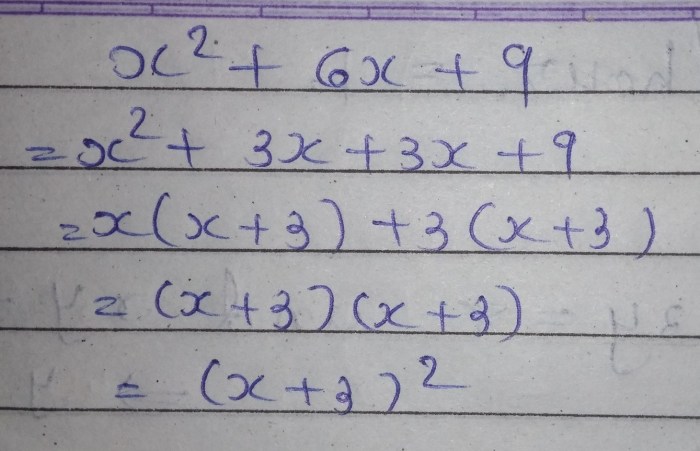 x² + 6x + 9
= x² + 3x + 3x + 9
= x(x+3) + 3(x+3)
= (x+3)(x+3)
= (x+3)²